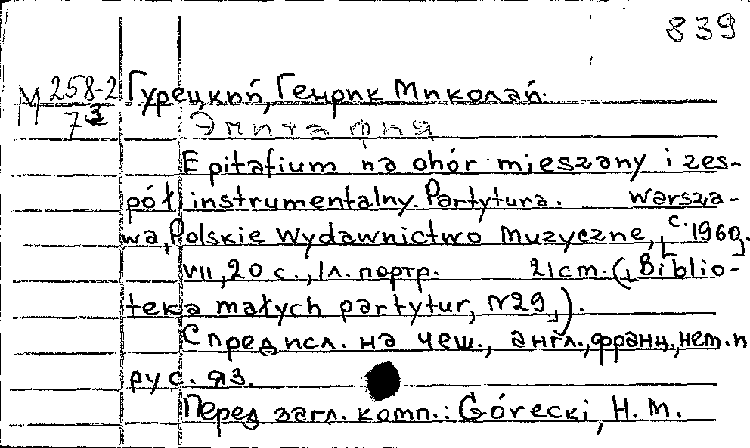 839
М 258-2 Гурецкий, Генрик Миколай.
73 Эпитафия
Epitafium na chór mieszany i zes-
pół instrumentalny. Partytura. Warsza-
wa, Polskie Wydawnictwo Muzyczne, [с. 1960].
VII, 20 с., 1л. портр. 21cm. („Biblio-
teka małych partytur, N29„).
С предисл. на чеш., англ., франц., нем. и
рус. яз.
Перед загл. комп.: Górecki, H. M.